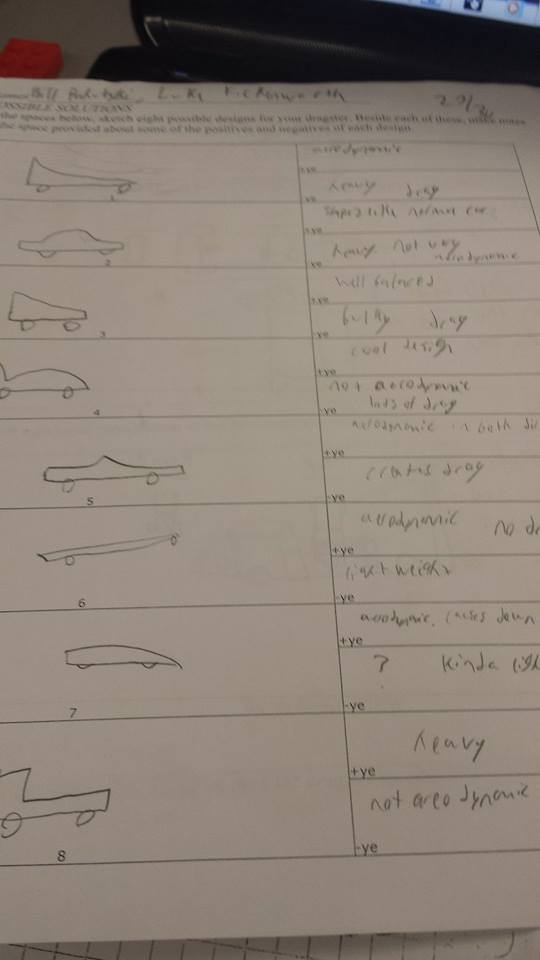 POSSIBLE SOLUTIONS
the spaces below, sketch eight possible designs for your dragster. Beside each of these, make notes
the space provided about some of the positives and negatives of each design
aerodynamic
+ve
heavy drag
-ve
1
normal car
+ve
heavy not very
aerodynamic
-ve
2
well
+ve
bulky drag
-ve
3
cool design
+ve
not aerodynamic
lots of drag
-ve
4
aerodynamic in both
+ve
creates drag
-ve
5
aerodynamic no
+ve
light weight
-ve
6
aerodynamic, causes down
+ve
? kinda
-ve
7
heavy
+ve
not areo dynamic
-ve
8